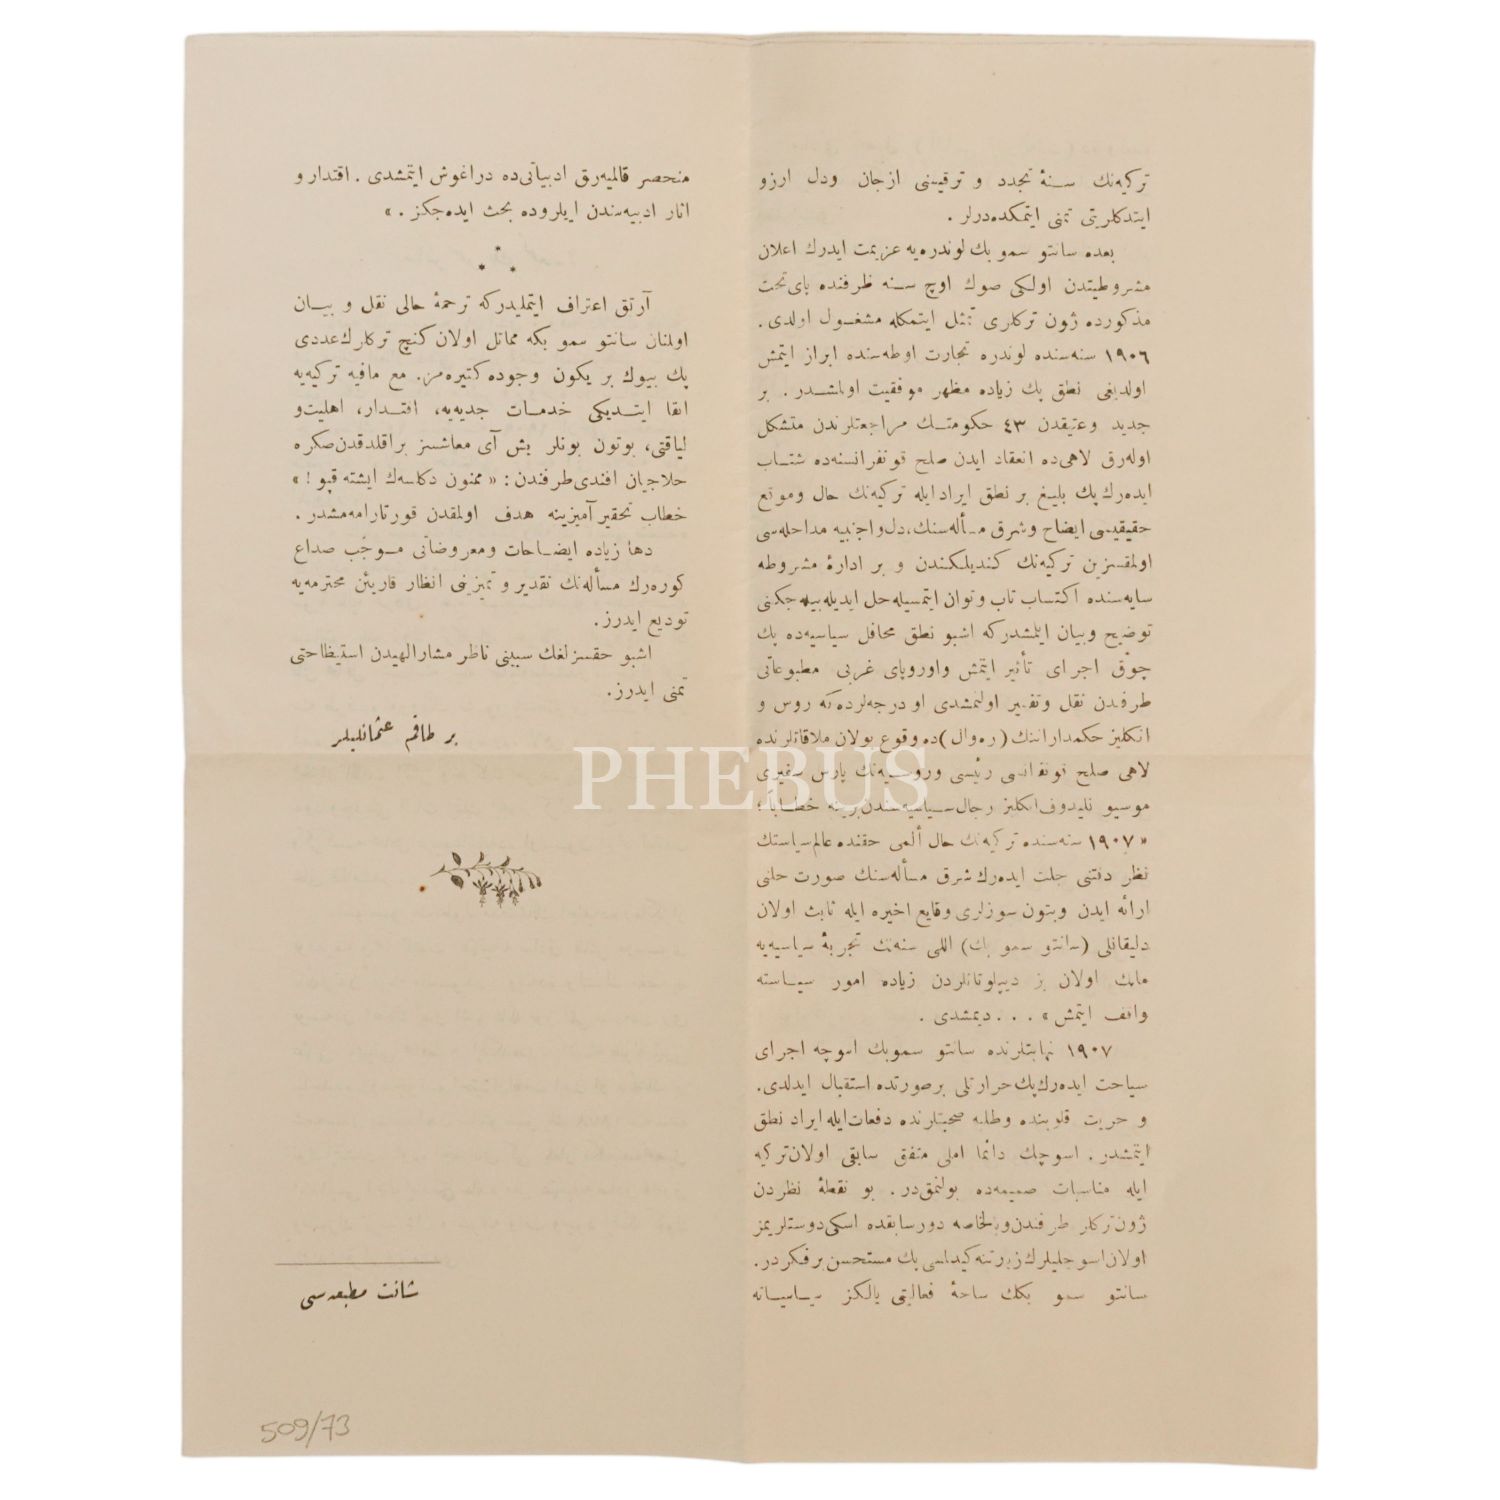 تركیه‌نك سنهٔ تجدد و ترقیسنی ازجان ودل ارزو
ایتدكلریتی تمنی ایتمكده‌درلر .
بعده سانتو سمو بك لوندره‌یه عزیمت ایدرك اعلان
مشروطیتدن اولكی صوك اوچ سنه ظرفنده پای تخت
مذكورده ژون تركلری تمثل ایتمكله مشغول اولدی .
١٩٠٦ سنه‌سنده لوندره تجارت اوطه‌سنده ابراز ایتمش
اولدیغی نطق پك زیاده مظهر موفقیت اولمشدر . بر
جدید وعتیقدن ٤٣ حكومتك مراجعتلرندن متشكل
اوله‌رق لاهی‌ده انعقاد ایدن صلح قونفرانسنه‌ده شتاب
ایده‌رك پك بلیغ بر نطق ایراد ایله تركیه‌نك حال وموقع
حقیقیسی ایضاح وشرق مسأله‌سنك، دل واجنبیه مداخله‌سی
اولمقسزین تركیه‌نك كندیلكندن و بر ادارهٔ مشروطه
سایه‌سنده اكتساب تاب وتوان ایتمسیله حل ایدیله‌بیله‌جكنی
توضیح وبیان ایلمشدركه اشبو نطق محافل سیاسیه‌ده پك
چوق اجرای تأثیر ایتمش واوروپای غربی مطبوعاتی
طرفدن نقل وتفسیر اولنمشدی او درجه‌لرده‌كه روس و
انكلیز حكمدارانك ( ره‌وال ) ده وقوع بولان ملاقاتلرنده
لاهی صلح قونفرانسی رئیسی وروسیه‌نك پارس سفیری
موسیو نلیدوف انكلیز رجال سیاسیه‌سندن برینه خطاباً ؛
« ١٩٠٧ سنه‌سنده تركیه‌نك حال ألمی حقنده عالم سیاستك
نظر دقتنی جلب ایده‌رك شرق مسأله‌سنك صورت حلنی
ارائه ایدن وبتون سوزلری وقایع اخیره ایله ثابت اولان
دلیقانلی ( سانتو سمو بك ) اللی سنه‌لك تجربهٔ سیاسیه‌یه
مالك اولان بز دیپلوماتلردن زیاده امور سیاسته
واقف ایتمش » . . . دیمشدی .
١٩٠٧ نهایتلرنده سانتو سموبك اسوچه اجرای
سیاحت ایده‌رك پك حرارتلی برصورتده استقبال ایدلدی .
و حریت قلوبنده وطلبه صحبتلرنده دفعات ایله ایراد نطق
ایتمشدر . اسوچك دائما املی متفق سابقی اولان تركیه
ایله مناسبات صمیمه‌ده بولنمق‌در . بو نقطهٔ نظردن
ژون تركلر طرفندن وبالخاصه دورسابقده اسكی دوستلریمز
اولان اسوجلیلرك زیارتنه كیدلسی پك مستحسن برفكر در .
سانتو سمو بكك ساحهٔ فعالیتی یالكز سیاسیاته
منحصر قالمیه‌رق ادبیاتی‌ده دراغوش ایتمشدی . اقتدار و
اثار ادبیه‌سندن ایلروده بحث ایده‌جكز . »
* * *
آرتق اعتراف ایتملیدركه ترجمهٔ حالی نقل و بیان
اولنان سانتو سمو بكه مماثل اولان كنچ تركلرك عددی
پك بیوك بر یكون وجوده كتیره‌مز . مع مافیه تركیه‌یه
ایفا ایتدیكی خدمات جدیه‌یه، اقتدار، اهلیت و
لیاقتی، بوتون بونلر بش آی معاشسز براقلدقدن صكره
حلاجیان افندی طرفندن : « ممنون دكلسه‌ك ایشته قپو ! »
خطاب تحقیر آمیزینه هدف اولمقدن قورتارامه‌مشدر .
دها زیاده ایضاحات ومعروضاتی موجب صداع
كوره‌رك مسأله‌نك تقدیر و تمیزینی انظار قارئین محترمه‌یه
تودیع ایدرز .
اشبو حقسزلغك سببنی ناظر مشارالهیدن استیظاحتی
تمنی ایدرز .
بر طاقم عثمانلیلر
شانت مطبعه‌سی
509/73
PHEBUS